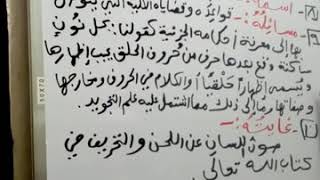 (٨) اسما
قواعده وقضاياه الكلية التي يتوصل
(٩) مسائله :-
بها إلى معرفة أحكامه الجزئية كقولنا :- كل نون
ساكنة وقع بعدها حرف من حروف الحلق يجب إظهارها
ويسمى إظهاراً حلقياً والكلام في الحروف ومخارجها
وصفاتها وما إلى ذلك مما اشتمل عليه علم التجويد .
(١٠) غايته :-
صون اللسان عن اللحن والتحريف في
كتاب الله تعالى .